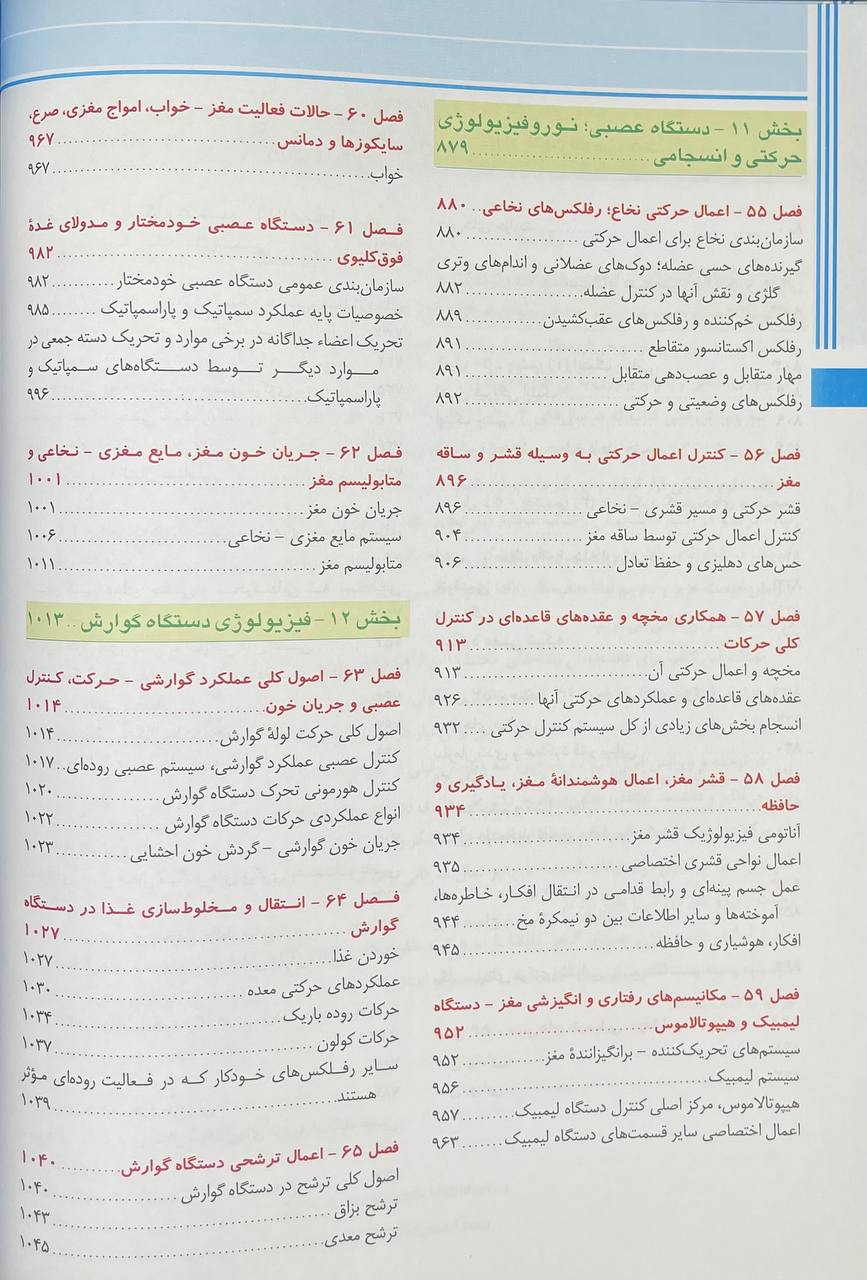 بخش ۱۱ - دستگاه عصبی؛ نوروفیزیولوژی
حرکتی و انسجامی ........ ۸۷۹
فصل ۵۵ - اعمال حرکتی نخاع؛ رفلکس‌های نخاعی .. ۸۸۰
سازمان‌بندی نخاع برای اعمال حرکتی ........ ۸۸۰
گیرنده‌های حسی عضله؛ دوک‌های عضلانی و اندام‌های وتری
گلژی و نقش آنها در کنترل عضله ........ ۸۸۲
رفلکس خم‌کننده و رفلکس‌های عقب‌کشیدن ........ ۸۸۹
رفلکس اکستانسور متقاطع ........ ۸۹۱
مهار متقابل و عصب‌دهی متقابل ........ ۸۹۱
رفلکس‌های وضعیتی و حرکتی ........ ۸۹۲
فصل ۵۶ - کنترل اعمال حرکتی به وسیله قشر و ساقه
مغز ........ ۸۹۶
قشر حرکتی و مسیر قشری - نخاعی ........ ۸۹۶
کنترل اعمال حرکتی توسط ساقه مغز ........ ۹۰۴
حس‌های دهلیزی و حفظ تعادل ........ ۹۰۶
فصل ۵۷ - همکاری مخچه و عقده‌های قاعده‌ای در کنترل
کلی حرکات ........ ۹۱۳
مخچه و اعمال حرکتی آن ........ ۹۱۳
عقده‌های قاعده‌ای و عملکردهای حرکتی آنها ........ ۹۲۶
انسجام بخش‌های زیادی از کل سیستم کنترل حرکتی .... ۹۳۲
فصل ۵۸ - قشر مغز، اعمال هوشمندانهٔ مغز، یادگیری و
حافظه ........ ۹۳۴
آناتومی فیزیولوژیک قشر مغز ........ ۹۳۴
اعمال نواحی قشری اختصاصی ........ ۹۳۵
عمل جسم پینه‌ای و رابط قدامی در انتقال افکار، خاطره‌ها،
آموخته‌ها و سایر اطلاعات بین دو نیمکرهٔ مخ ........ ۹۴۴
افکار، هوشیاری و حافظه ........ ۹۴۵
فصل ۵۹ - مکانیسم‌های رفتاری و انگیزشی مغز - دستگاه
لیمبیک و هیپوتالاموس ........ ۹۵۲
سیستم‌های تحریک‌کننده - برانگیزانندهٔ مغز ........ ۹۵۲
سیستم لیمبیک ........ ۹۵۶
هیپوتالاموس، مرکز اصلی کنترل دستگاه لیمبیک ........ ۹۵۷
اعمال اختصاصی سایر قسمت‌های دستگاه لیمبیک ........ ۹۶۳
فصل ۶۰ - حالات فعالیت مغز - خواب، امواج مغزی، صرع،
سایکوزها و دمانس ........ ۹۶۷
خواب ........ ۹۶۷
فصل ۶۱ - دستگاه عصبی خودمختار و مدولای غدهٔ
فوق‌کلیوی ........ ۹۸۲
سازمان‌بندی عمومی دستگاه عصبی خودمختار ........ ۹۸۲
خصوصیات پایه عملکرد سمپاتیک و پاراسمپاتیک ........ ۹۸۵
تحریک اعضاء جداگانه در برخی موارد و تحریک دسته جمعی در
موارد دیگر توسط دستگاه‌های سمپاتیک و
پاراسمپاتیک ........ ۹۹۶
فصل ۶۲ - جریان خون مغز، مایع مغزی - نخاعی و
متابولیسم مغز ........ ۱۰۰۱
جریان خون مغز ........ ۱۰۰۱
سیستم مایع مغزی - نخاعی ........ ۱۰۰۶
متابولیسم مغز ........ ۱۰۱۱
بخش ۱۲ - فیزیولوژی دستگاه گوارش .. ۱۰۱۳
فصل ۶۳ - اصول کلی عملکرد گوارشی - حرکت، کنترل
عصبی و جریان خون ........ ۱۰۱۴
اصول کلی حرکت لولهٔ گوارش ........ ۱۰۱۴
کنترل عصبی عملکرد گوارشی، سیستم عصبی روده‌ای .. ۱۰۱۷
کنترل هورمونی تحرک دستگاه گوارش ........ ۱۰۲۰
انواع عملکردی حرکات دستگاه گوارش ........ ۱۰۲۲
جریان خون گوارشی - گردش خون احشایی ........ ۱۰۲۳
فصل ۶۴ - انتقال و مخلوط‌سازی غذا در دستگاه
گوارش ........ ۱۰۲۷
خوردن غذا ........ ۱۰۲۷
عملکردهای حرکتی معده ........ ۱۰۳۰
حرکات روده باریک ........ ۱۰۳۴
حرکات کولون ........ ۱۰۳۷
سایر رفلکس‌های خودکار که در فعالیت روده‌ای مؤثر
هستند ........ ۱۰۳۹
فصل ۶۵ - اعمال ترشحی دستگاه گوارش ........ ۱۰۴۰
اصول کلی ترشح در دستگاه گوارش ........ ۱۰۴۰
ترشح بزاق ........ ۱۰۴۳
ترشح معدی ........ ۱۰۴۵